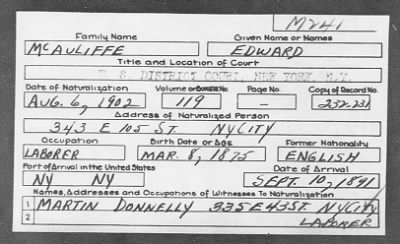 M241
Family Name Given Name or Names
McAULIFFE EDWARD
Title and Location of Court
U. S. DISTRICT COURT, NEW YORK, N.Y.
Date of Naturalization Volume or Bundle No. Page No. Copy of Record No.
AUG. 6, 1902 119 — 232-231
Address of Naturalized Person
343 E 105 ST. NYCITY
Occupation Birth Date or Age Former Nationality
LABORER MAR. 8, 1875 ENGLISH
Port of Arrival in the United States Date of Arrival
NY NY SEPT. 10, 1891
Names, Addresses and Occupations of Witnesses To Naturalization
1 MARTIN DONNELLY 335 E 43 ST. NYCITY
2 LABORER